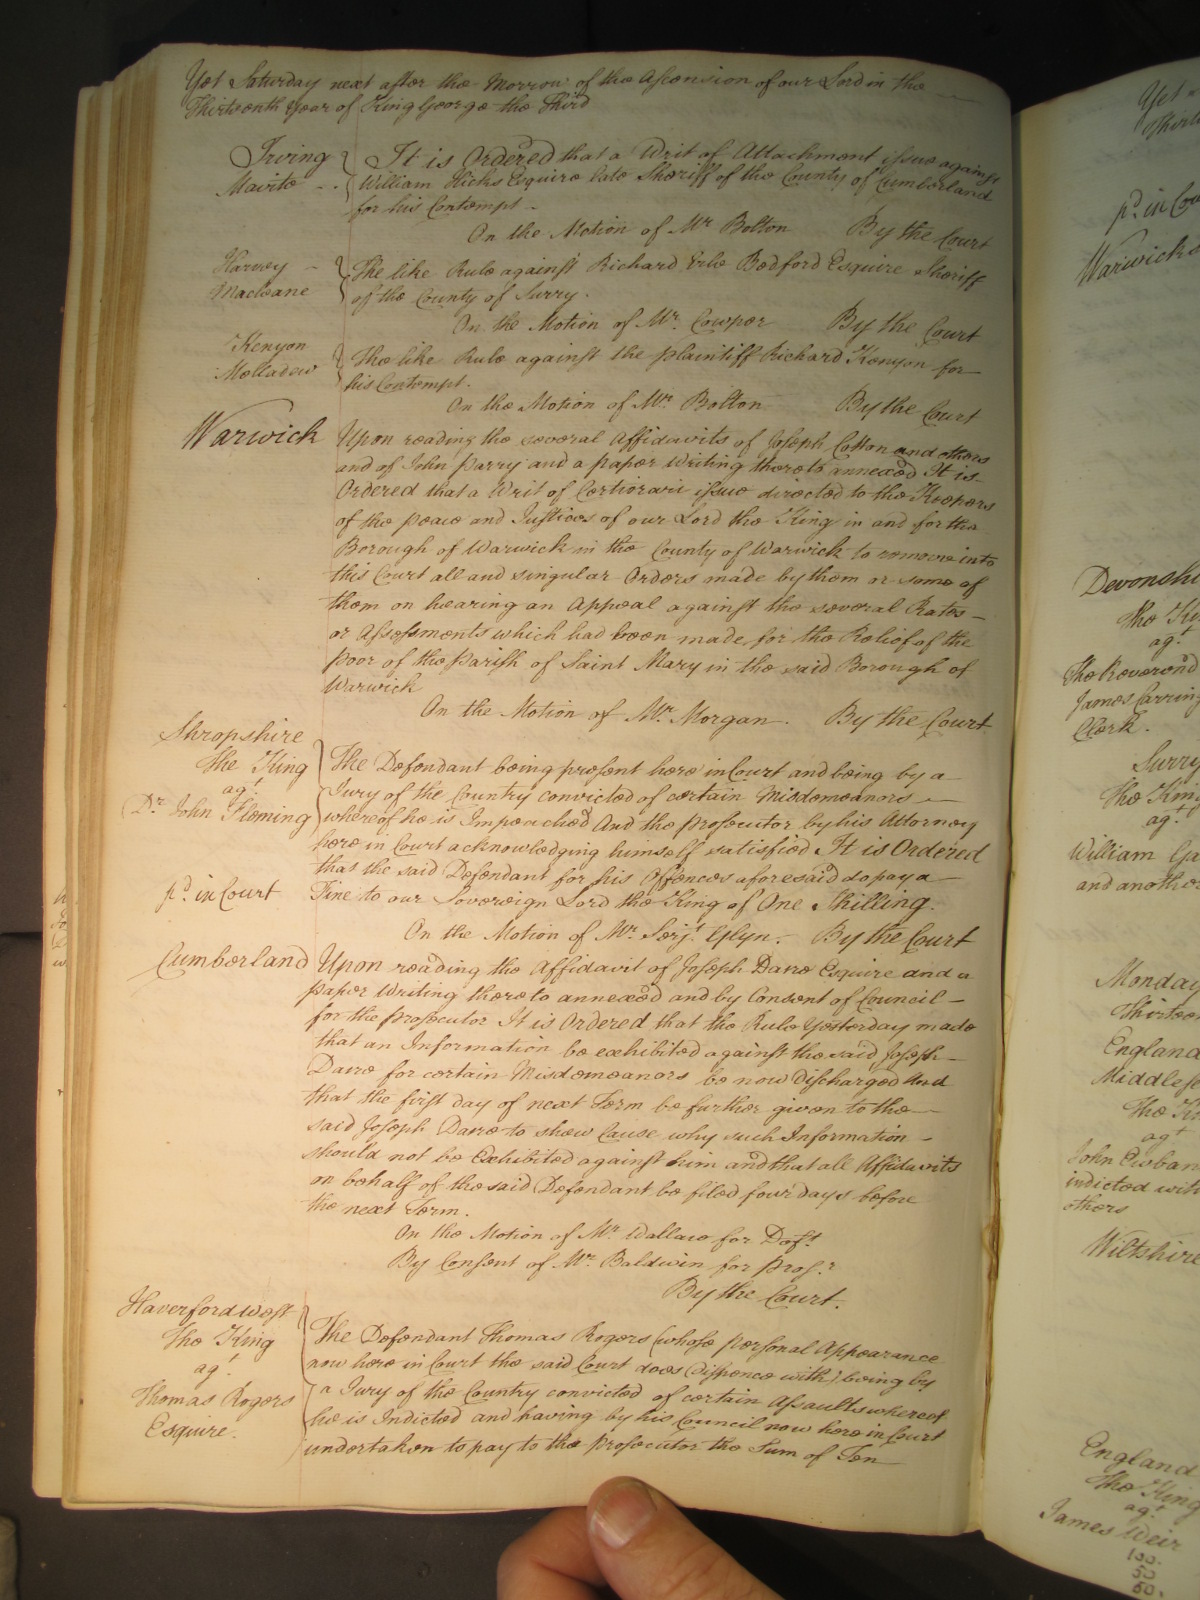 Yet Saturday next after the Morrow of the Ascension of our Lord in the
Thirteenth Year of King George the Third
Irving
Mavite
It is Ordered that a Writ of Attachment issue against
William Hicks Esquire late Sheriff of the County of Cumberland
for his Contempt
On the Motion of Mr. Bolton By the Court
Harvey
Macleane
The like Rule against Richard Erle Bedford Esquire Sheriff
of the County of Surry.
On the Motion of Mr. Cowper By the Court
Kenyon
The like Rule against the plaintiff Richard Kenyon for
his Contempt.
On the Motion of Mr. Bolton By the Court
Warwick
Upon reading the several Affidavits of Joseph Cotton and others
and of John Parry and a paper Writing thereto annexed It is
Ordered that a Writ of Certiorari issue directed to the Keepers
of the peace and Justices of our Lord the King in and for the
Borough of Warwick in the County of Warwick to remove into
this Court all and singular Orders made by them or some of
them on hearing an Appeal against the several Rates
or Assessments which had been made for the Relief of the
poor of the Parish of Saint Mary in the said Borough of
Warwick
On the Motion of Mr. Morgan. By the Court
Shropshire
The King
agt
Dr. John Fleming
The Defendant being present here in Court and being by a
Jury of the Country convicted of certain Misdemeanors
whereof he is Impeached And the prosecutor by his Attorney
here in Court acknowledging himself satisfied It is Ordered
that the said Defendant for his Offences aforesaid do pay a
Fine to our Sovereign Lord the King of One Shilling.
pd. in Court
On the Motion of Mr. Serjt. Glyn. By the Court
Cumberland
Upon reading the Affidavit of Joseph Dacre Esquire and a
paper Writing thereto annexed and by Consent of Council
for the prosecutor It is Ordered that the Rule Yesterday made
that an Information be exhibited against the said Joseph
Dacre for certain Misdemeanors be now discharged And
that the first day of next Term be further given to the
said Joseph Dacre to shew Cause why such Information
should not be Exhibited against him and that all Affidavits
on behalf of the said Defendant be filed four days before
the next Term.
On the Motion of Mr. Wallace for Deft
By Consent of Mr. Baldwin for Prosr.
By the Court.
Haverfordwest
The King
agt
Thomas Rogers
Esquire.
The Defendant Thomas Rogers (whose personal Appearance
now here in Court the said Court does dispence with) being by
a Jury of the Country convicted of certain Assaults whereof
he is Indicted and having by his Council now here in Court
undertaken to pay to the prosecutor the Sum of Ten
Yet
pd. in
Warwicks
Devonshi
The
agt
The Reverend
James
Clerk.
Surry
The King
agt
William
and another
Monday
England
Middlese
The
agt
John
indicted with
others
Wiltshire
England
The King
agt
James Weir
100.
50
50.